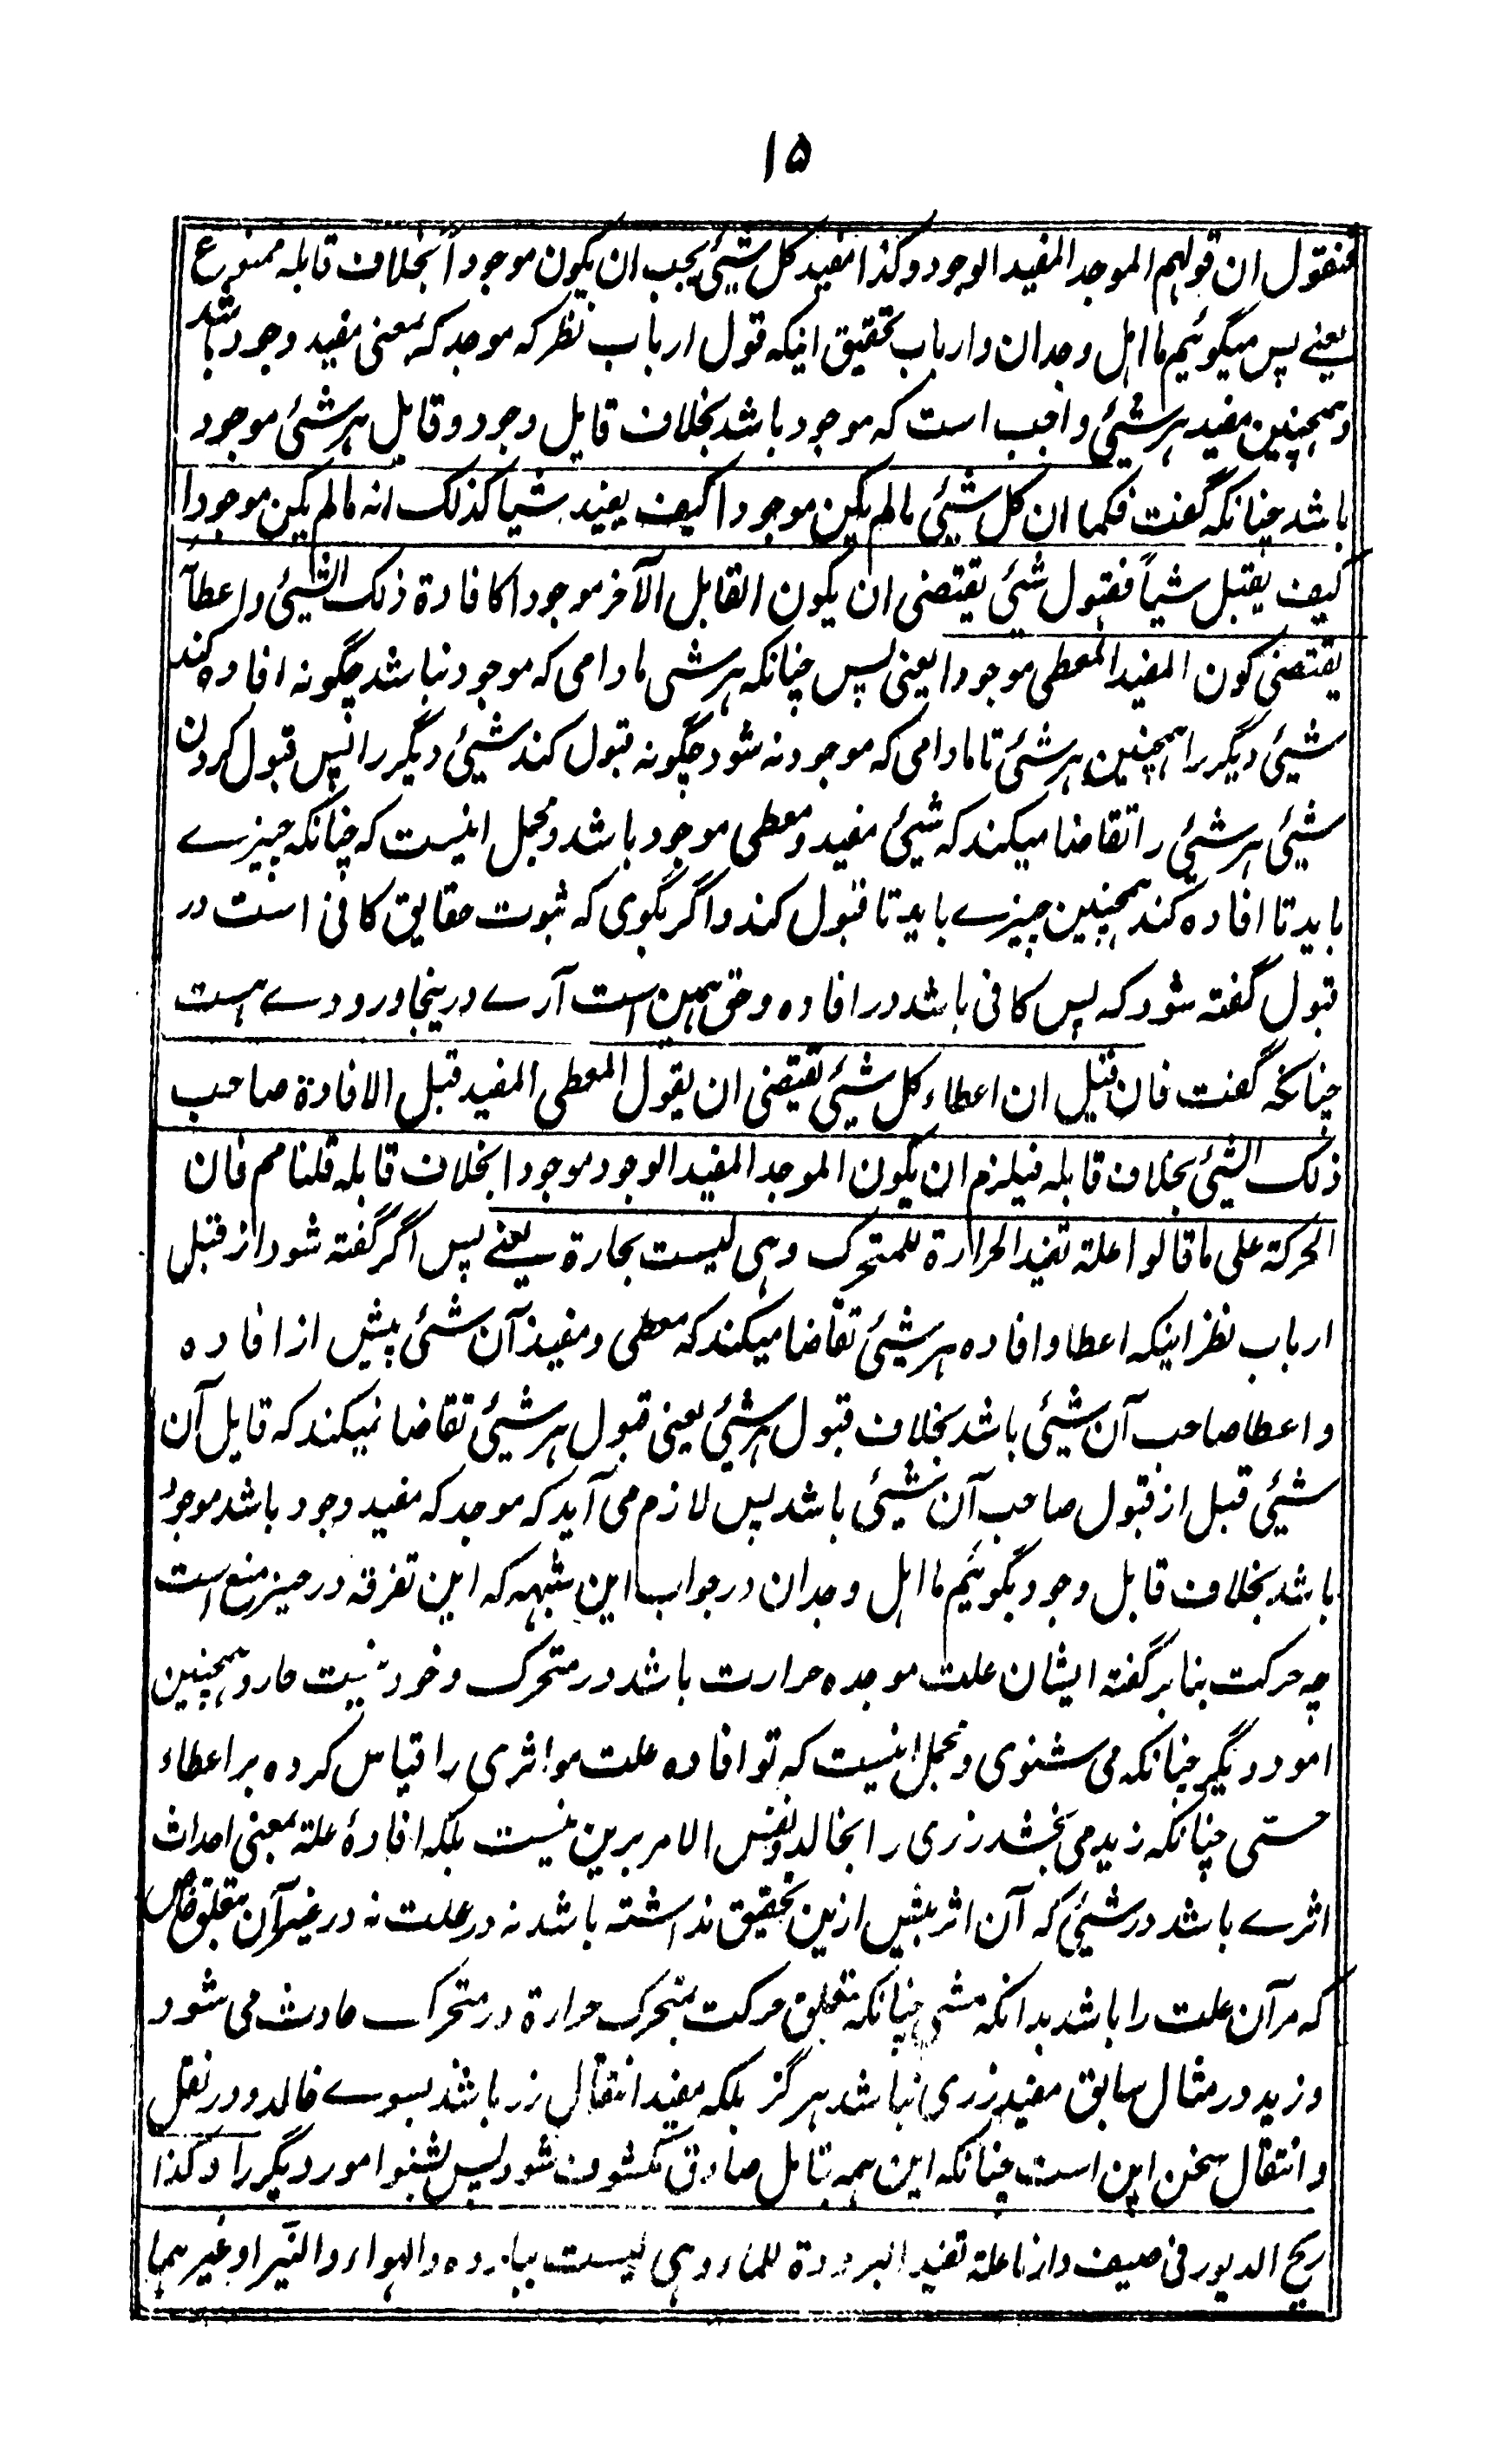 ۱۵
فنقول ان قولهم الموجد المفید الوجود وکذا مفید کل شیئی یجب ان یکون موجودا بخلاف قابله ممنوع
یعنے پس میگوئیم ما اہل وجدان و ارباب تحقیق اینکہ قول ارباب نظر کہ موجد کہ بمعنی مفید وجود باشد
و ہمچنین مفید ہر شیئی واجب است کہ موجود باشد بخلاف قابل وجود و قابل ہر شئی موجود
باشد چنانکہ گفت فکما ان کل شیئی مالم یکن موجودا کیف یفید شیا کذلک انه مالم یکن موجودا
کیف یقبل شیاً فقبول شئی یقتضی ان یکون القابل الآخر موجودا کافادة ذلک الشیئی و اعطآ
یقتضی کون المفید المعطی موجودا یعنی پس چنانکہ ہر شی مادامی کہ موجود نباشد چگونہ افادہ کند
شیئی دیگر را ہمچنین ہر شئی تا مادامی کہ موجود نہ شود چگونہ قبول کند شیئی دیگر را پس قبول کردن
شیئی ہر شیئی را تقاضا میکند کہ شیئ مفید و معطی موجود باشد و مجمل اینست کہ چنانکہ چیزے
باید تا افادہ کند ہمچنین چیزے باید تا قبول کند و اگر بگوی کہ ثبوت حقایق کافی است در
قبول گفتہ شود کہ پس کافی باشد در افادہ و حق ہمین است آرے درینجا ورودے ہست
چنانکہ گفت فان قیل ان اعطاء کل شیئی تقتضی ان یقول المعطی المفید قبل الافادة صاحب
ذلک الشیئی بخلاف قابله فیلزم ان یکون الموجد المفید الوجود موجودا بخلاف قابله قلنا مم فان
الحرکة علی ما قالوا علة تفید الحرارة للمتحرک و ہی لیست بحارة یعنے پس اگر گفتہ شود از قبل
ارباب نظر اینکہ اعطا و افادہ ہر شیئی تقاضا میکند کہ معطی و مفید آن شئی پیش از افادہ
و اعطا صاحب آن شیئی باشد بخلاف قبول ہر شیئی یعنی قبول ہر شیئی تقاضا نمیکند کہ قابل آن
شیئی قبل از قبول صاحب آن شیئی باشد پس لازم می آید کہ موجد کہ مفید وجود باشد موجود
باشد بخلاف قابل وجود بگوئیم ما اہل وجدان در جواب این شبہہ کہ این تفرقہ در حیز منع است
چہ حرکت بنا بر گفتہ ایشان علت موجدہ حرارت باشد در متحرک و خود نیست حار و ہمچنین
امور دیگر چنانکہ می شنوی و مجمل اینست کہ تو افادہ علت مواثری را قیاس کردہ بر اعطاء
حستی چنانکہ زید می بخشد زری را بخالد و نفس الامر برین نیست بلکہ افادۂ علة بمعنی احداث
اثرے باشد در شیئی کہ آن اثر پیش ازین تحقیق نداشتہ باشد نہ در علت نہ در غیر آن بتعلق خاص
کہ مر آن علت را باشد بدانکہ مشی چنانکہ بتعلق حرکت بتحرک حرارة در متحرک حادث می شود
و زید در مثال سابق مفید زری نباشد ہرگز بلکہ مفید انتقال زر باشد بسوے خالد و در نقل
و انتقال سخن این است چنانکہ این ہمہ بتامل صادق مکشوف شود پس بشنو امور دیگر را و کذا
ریح الدبور فی صیف دارنا علة تفید البرودة للماء و ہی لیست بباردہ والہواء والنیر او غیرہما